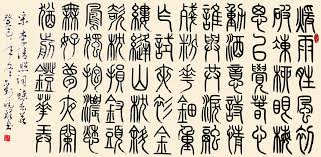 煖雨晴風初
破凍柳眼梅
腮已覺春心
動酒意詩情
誰與共淚融
殘粉花鈿重
乍試夾衫金
縷縫山枕斜
欹枕損釵頭
鳳獨抱濃愁
無好夢夜闌
猶剪燈花弄
宋李清照詞蝶戀花
癸巳年冬